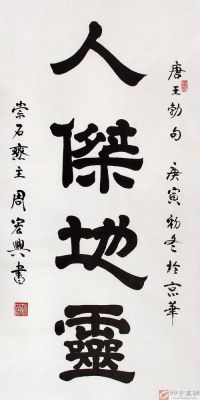 人傑地靈
唐王勃句 庚寅初冬於京華
崇石齋主周宏興書